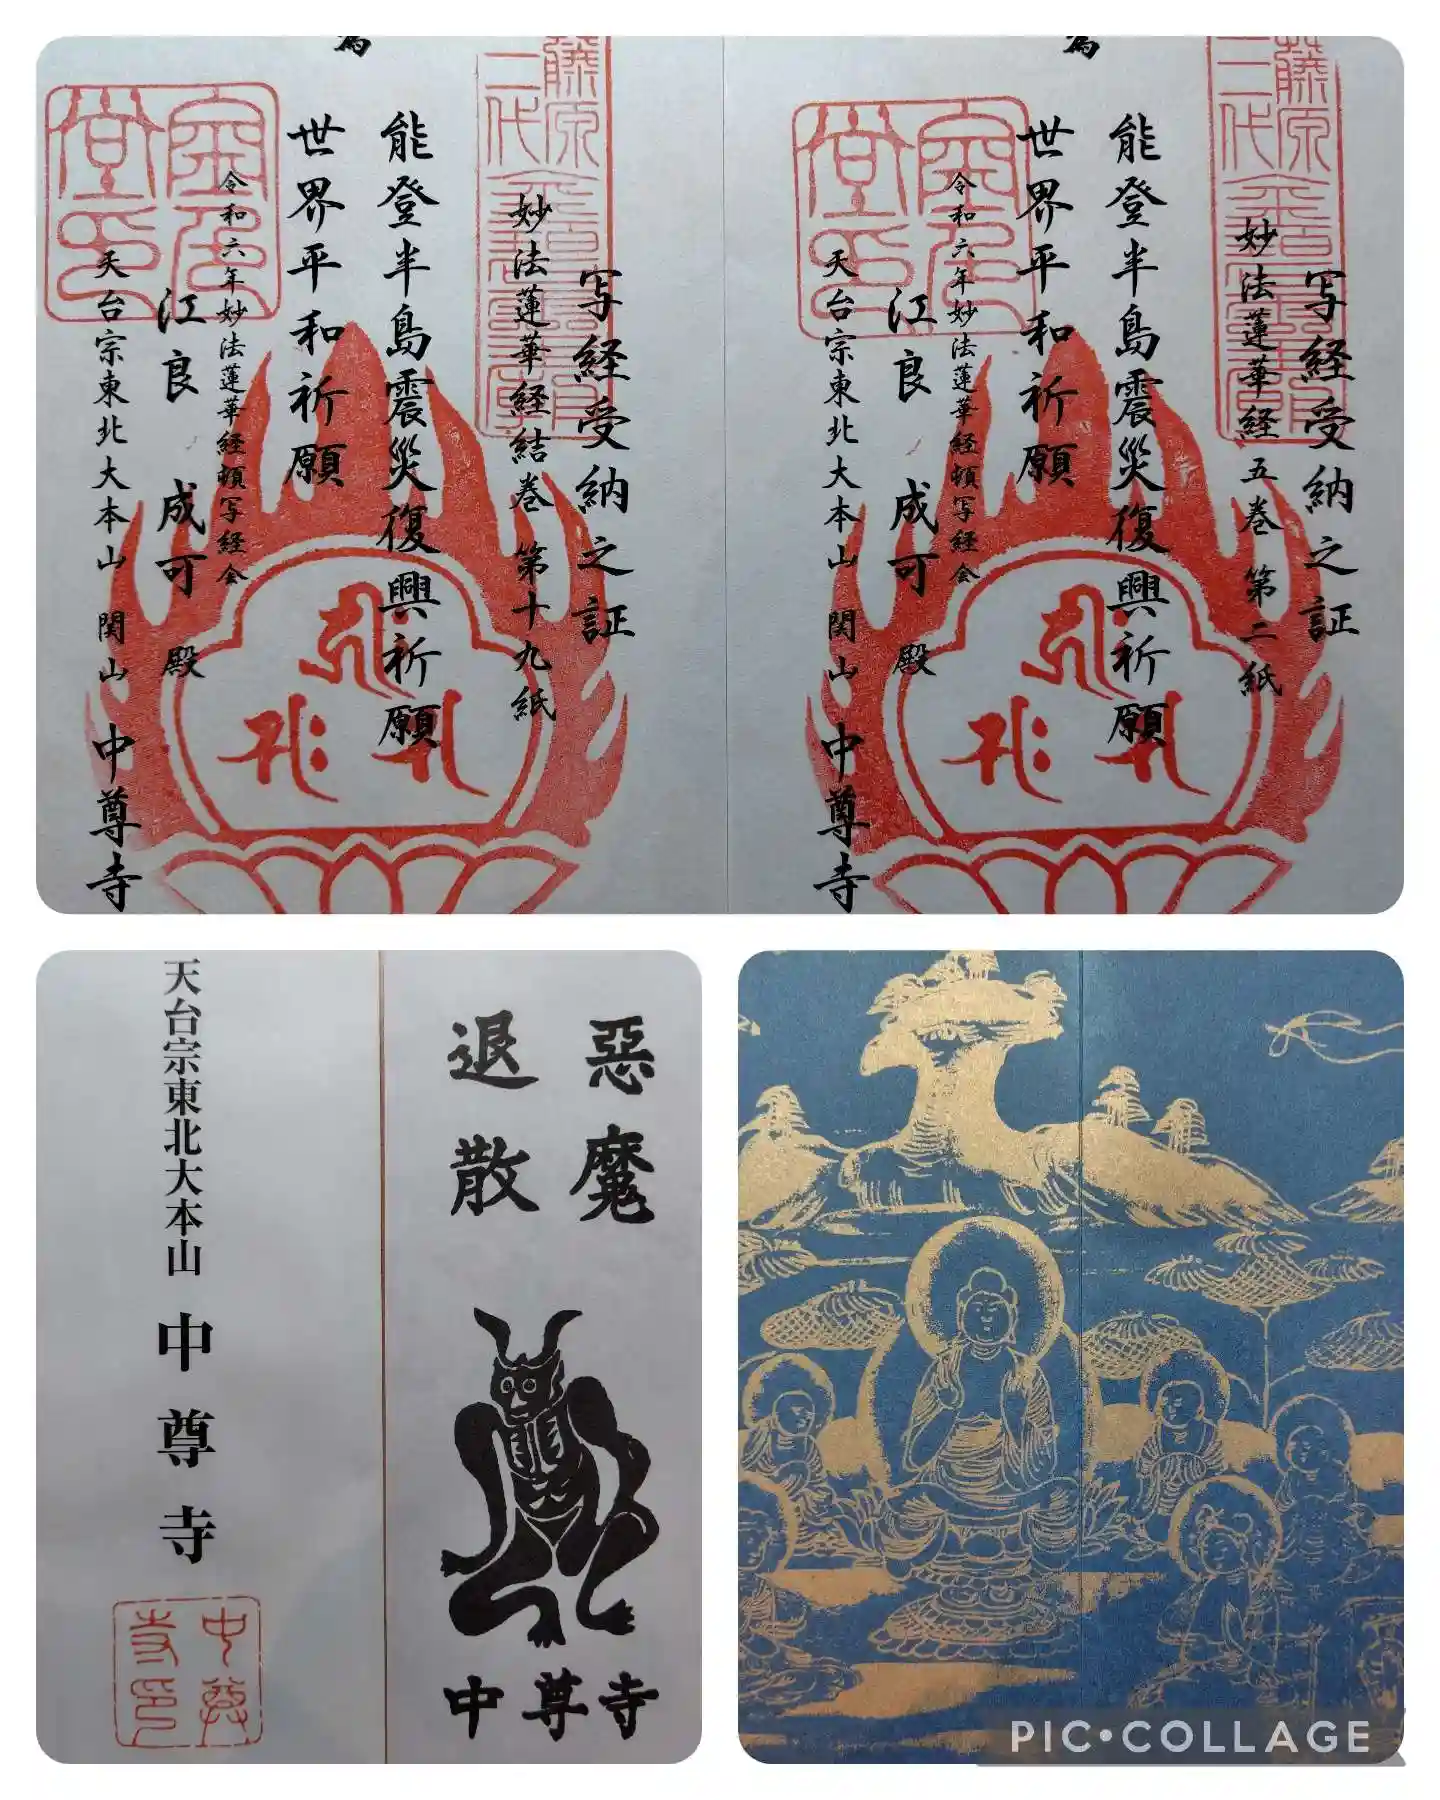 為
写経受納之証
妙法蓮華経結巻 第十九紙
能登半島震災復興祈願
世界平和祈願
令和六年妙法蓮華経頓写経会
江良 成可 殿
天台宗東北大本山 関山 中尊寺
金色堂印
為
写経受納之証
妙法蓮華経五巻 第二紙
能登半島震災復興祈願
世界平和祈願
令和六年妙法蓮華経頓写経会
江良 成可 殿
天台宗東北大本山 関山 中尊寺
金色堂印
惡魔
退散
中尊寺
天台宗東北大本山 中尊寺
中尊寺印
PIC•COLLAGE